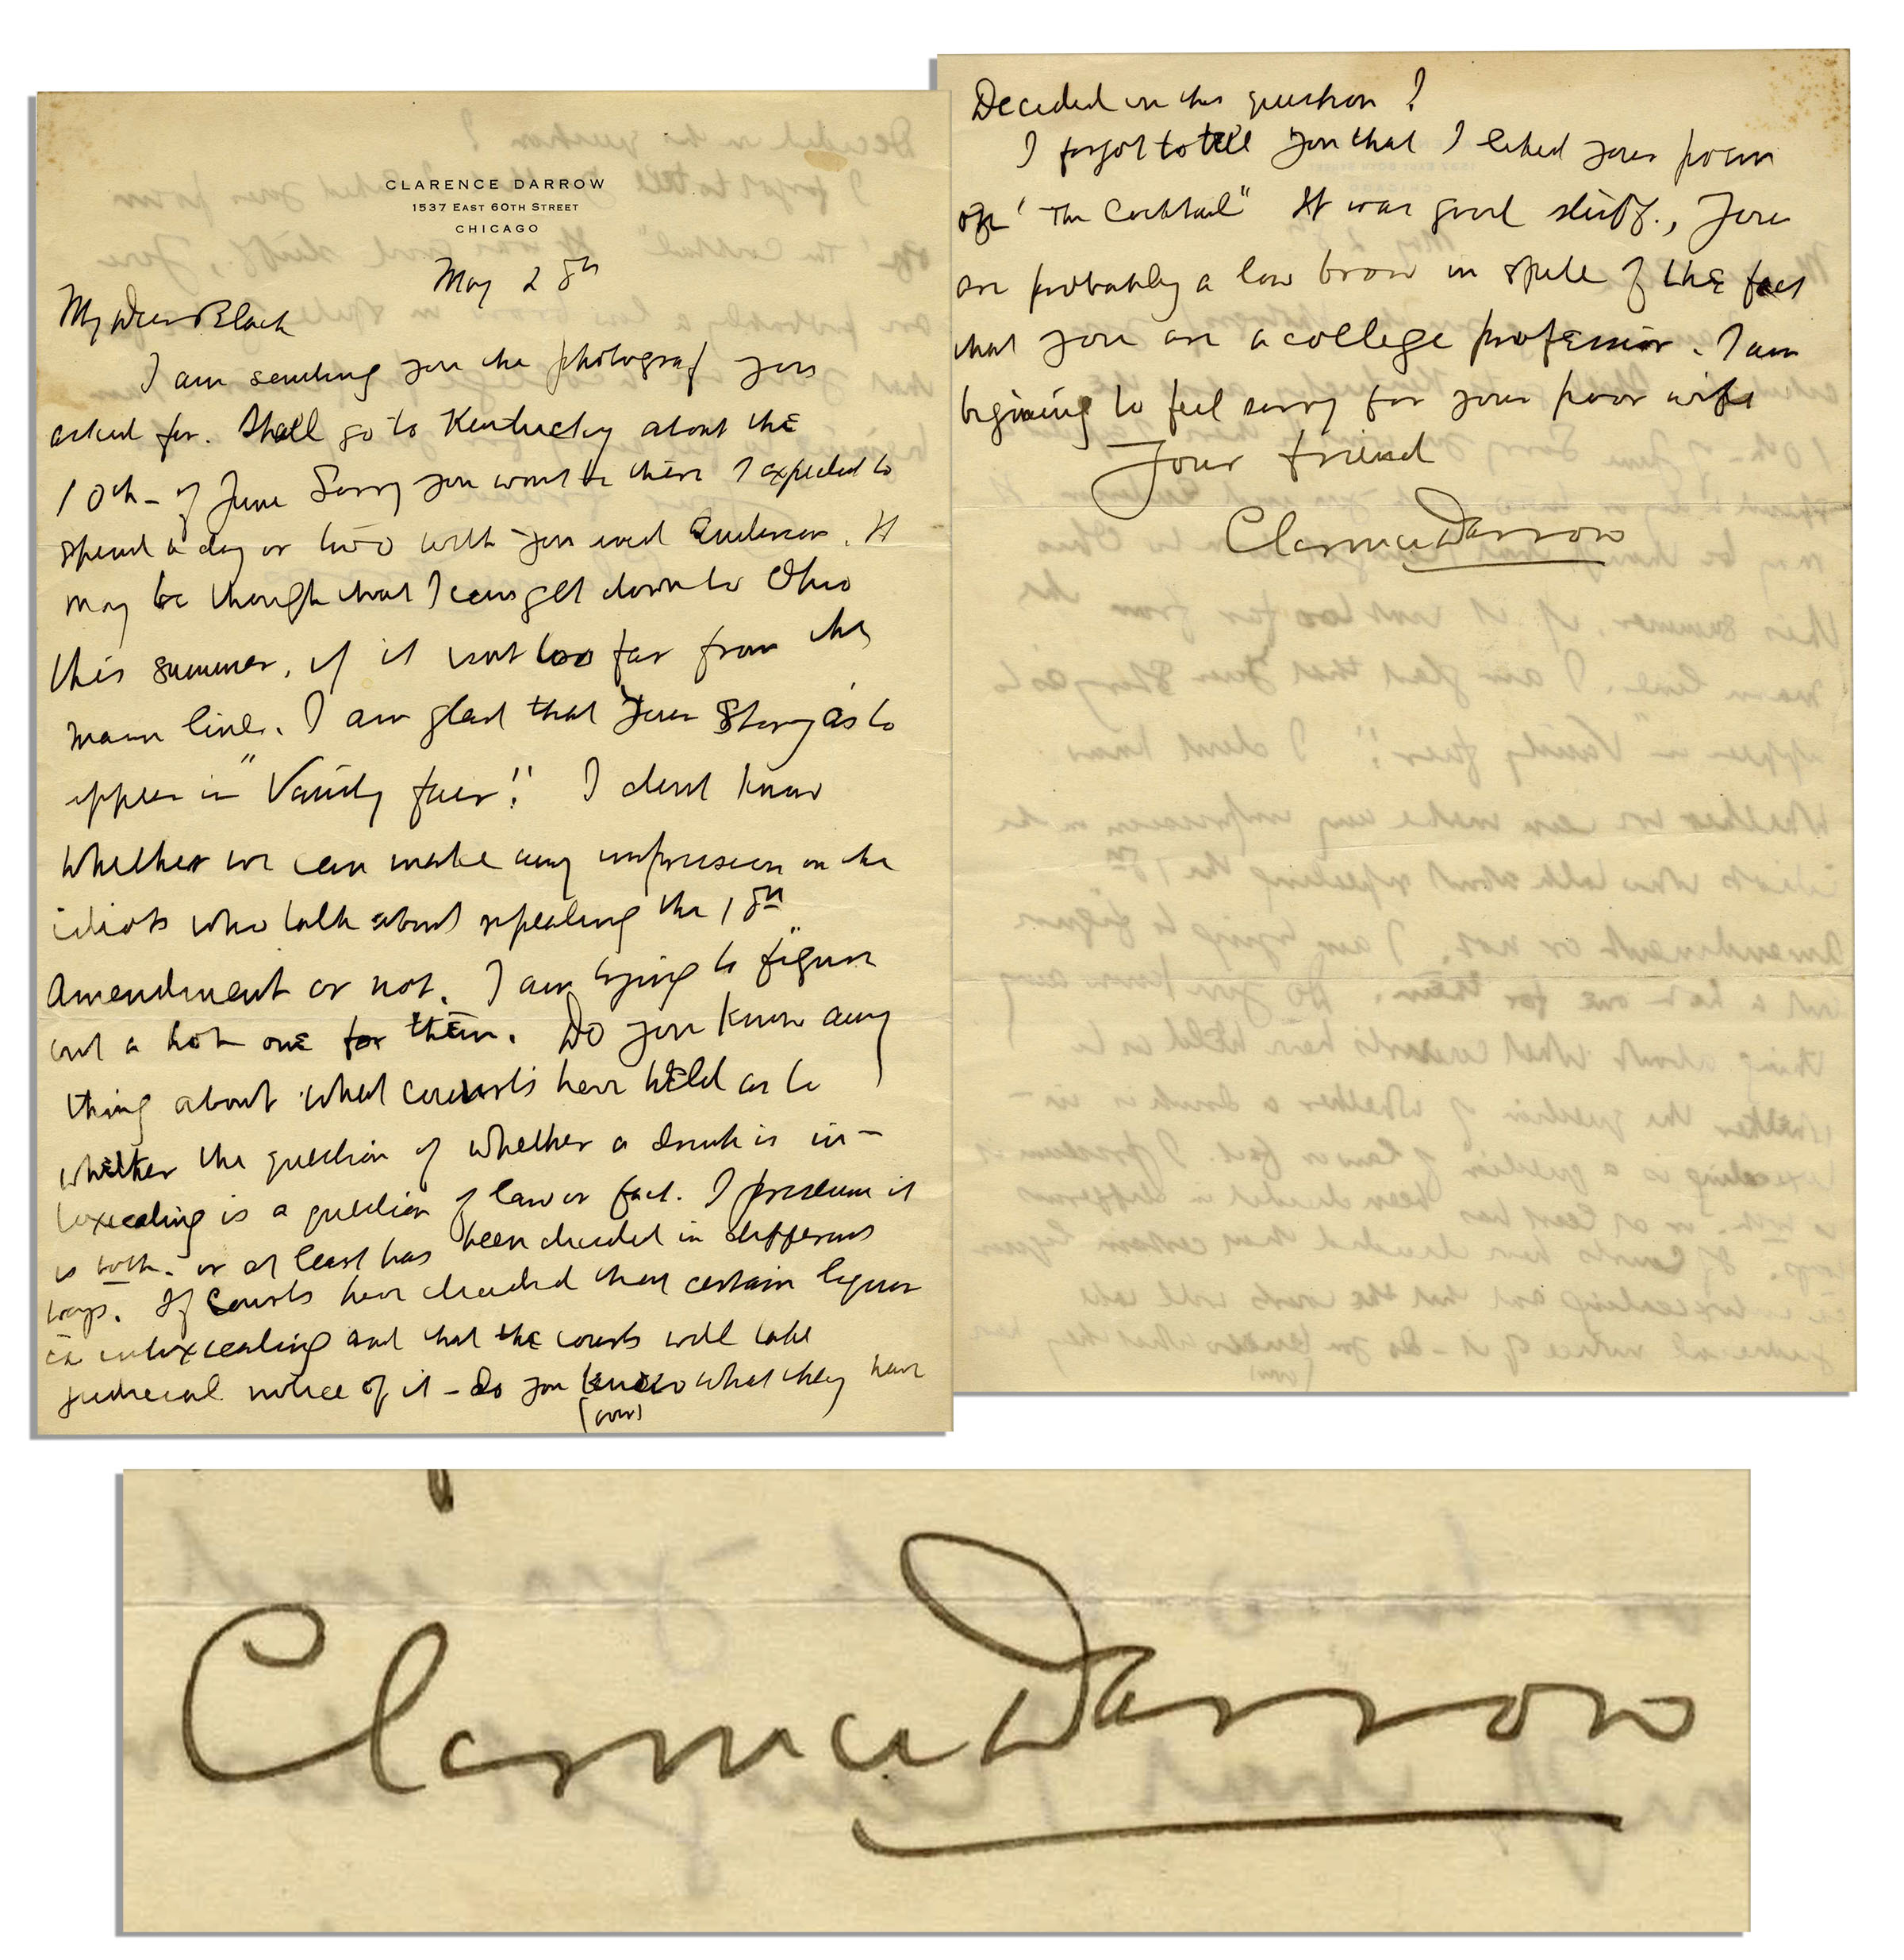 CLARENCE DARROW
1537 EAST 60TH STREET
CHICAGO
May 28th
My Dear Black
I am sending you the photograf you
asked for. Shall go to Kentucky about the
10th - of June Sorry you wont be there I expected to
spend a day or two with you and Anderson. It
may be though that I can get down to Ohio
this summer, if it isnt too far from the
main line. I am glad that your Story is to
appear in "Vanity fair". I dont know
whether we can make any impression on the
idiots who talk about repealing the 18th
Amendment or not. I am trying to figure
out a hot one for them. Do you know any
thing about what courts have held as to
whether the question of whether a drink is in-
toxicating is a question of law or fact. I presume it
is both - or at least has been decided in different
ways. If Courts have decided that certain liquor
is intoxicating and that the courts will take
judicial notice of it - do you know what they have
(over)
Decided in this question?
I forgot to tell you that I liked your poem
on "The Cocktail" It was good stuff., You
are probably a low brow in spite of the fact
that you are a college professor. I am
begining to feel sorry for your poor wife
Your friend
Clarence Darrow
Clarence Darrow